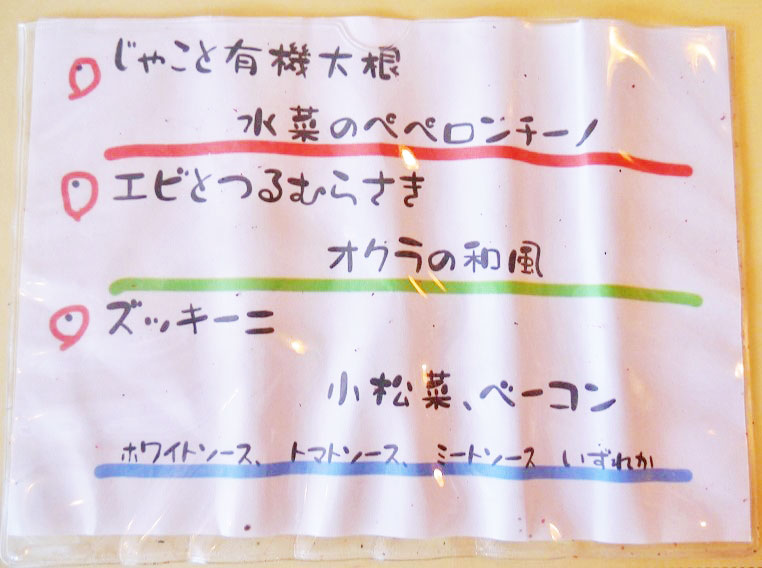 じゃこと有機大根
水菜のペペロンチーノ
エビとつるむらさき
オクラの和風
ズッキーニ
小松菜、ベーコン
ホワイトソース、トマトソース、ミートソース いずれか